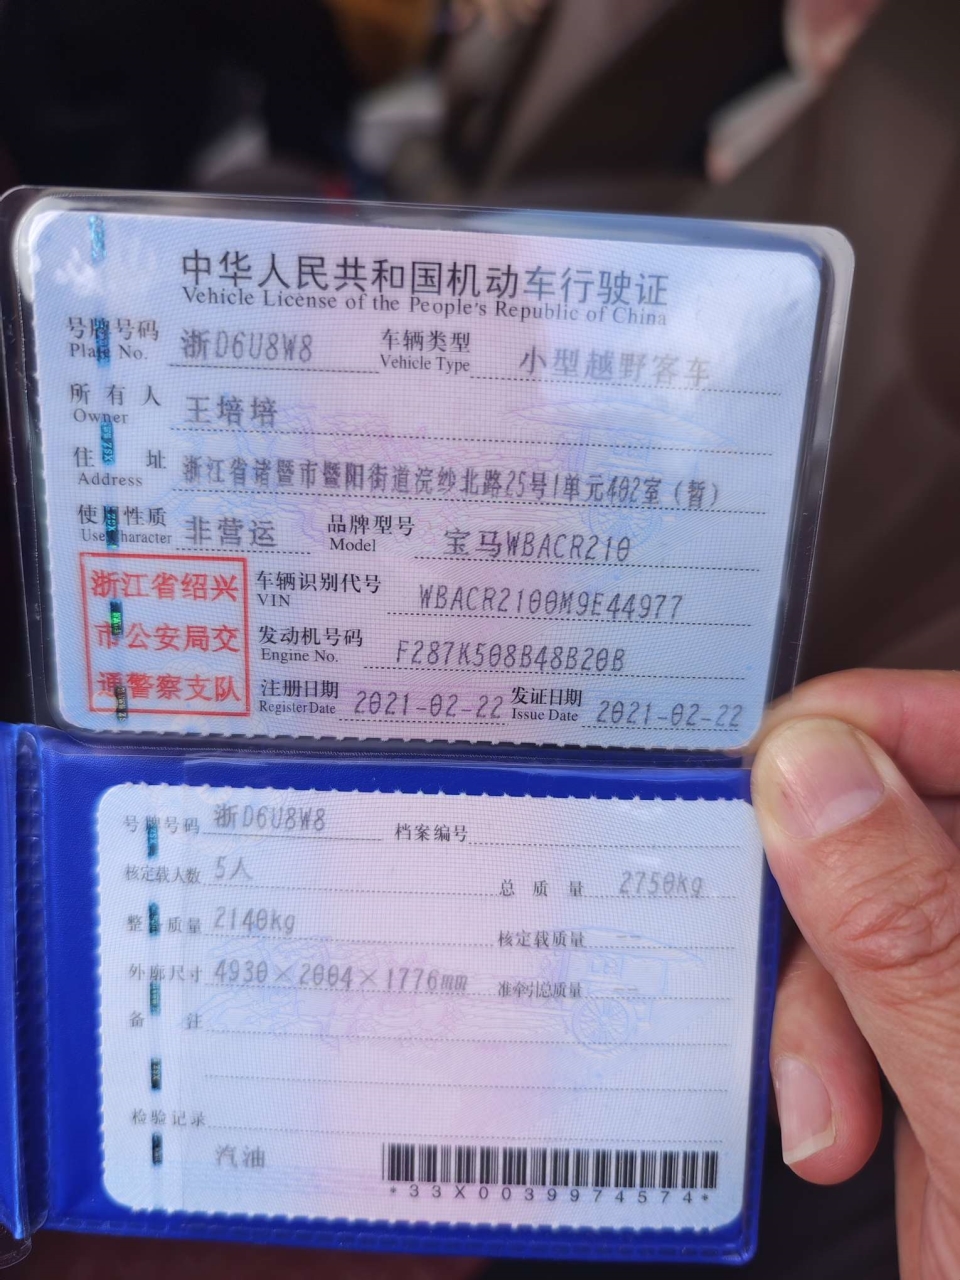 中华人民共和国机动车行驶证
Vehicle License of the People's Republic of China
号牌号码 浙D6U8W8 车辆类型 小型越野客车
Plate No. Vehicle Type
所有人 王培培
Owner
住址 浙江省诸暨市暨阳街道浣纱北路25号1单元402室（暂）
Address
使用性质 非营运 品牌型号 宝马WBACR210
Use Character Model
浙江省绍兴
市公安局交
通警察支队
车辆识别代号 WBACR2100M9E44977
VIN
发动机号码 F287K508B48B20B
Engine No.
注册日期 2021-02-22 发证日期 2021-02-22
Register Date Issue Date
号牌号码 浙D6U8W8 档案编号
核定载人数 5人 总质量 2750kg
整备质量 2140kg 核定载质量 --
外廓尺寸 4930×2004×1776mm 准牵引总质量 --
备注
检验记录
汽油
*33X0039974574*